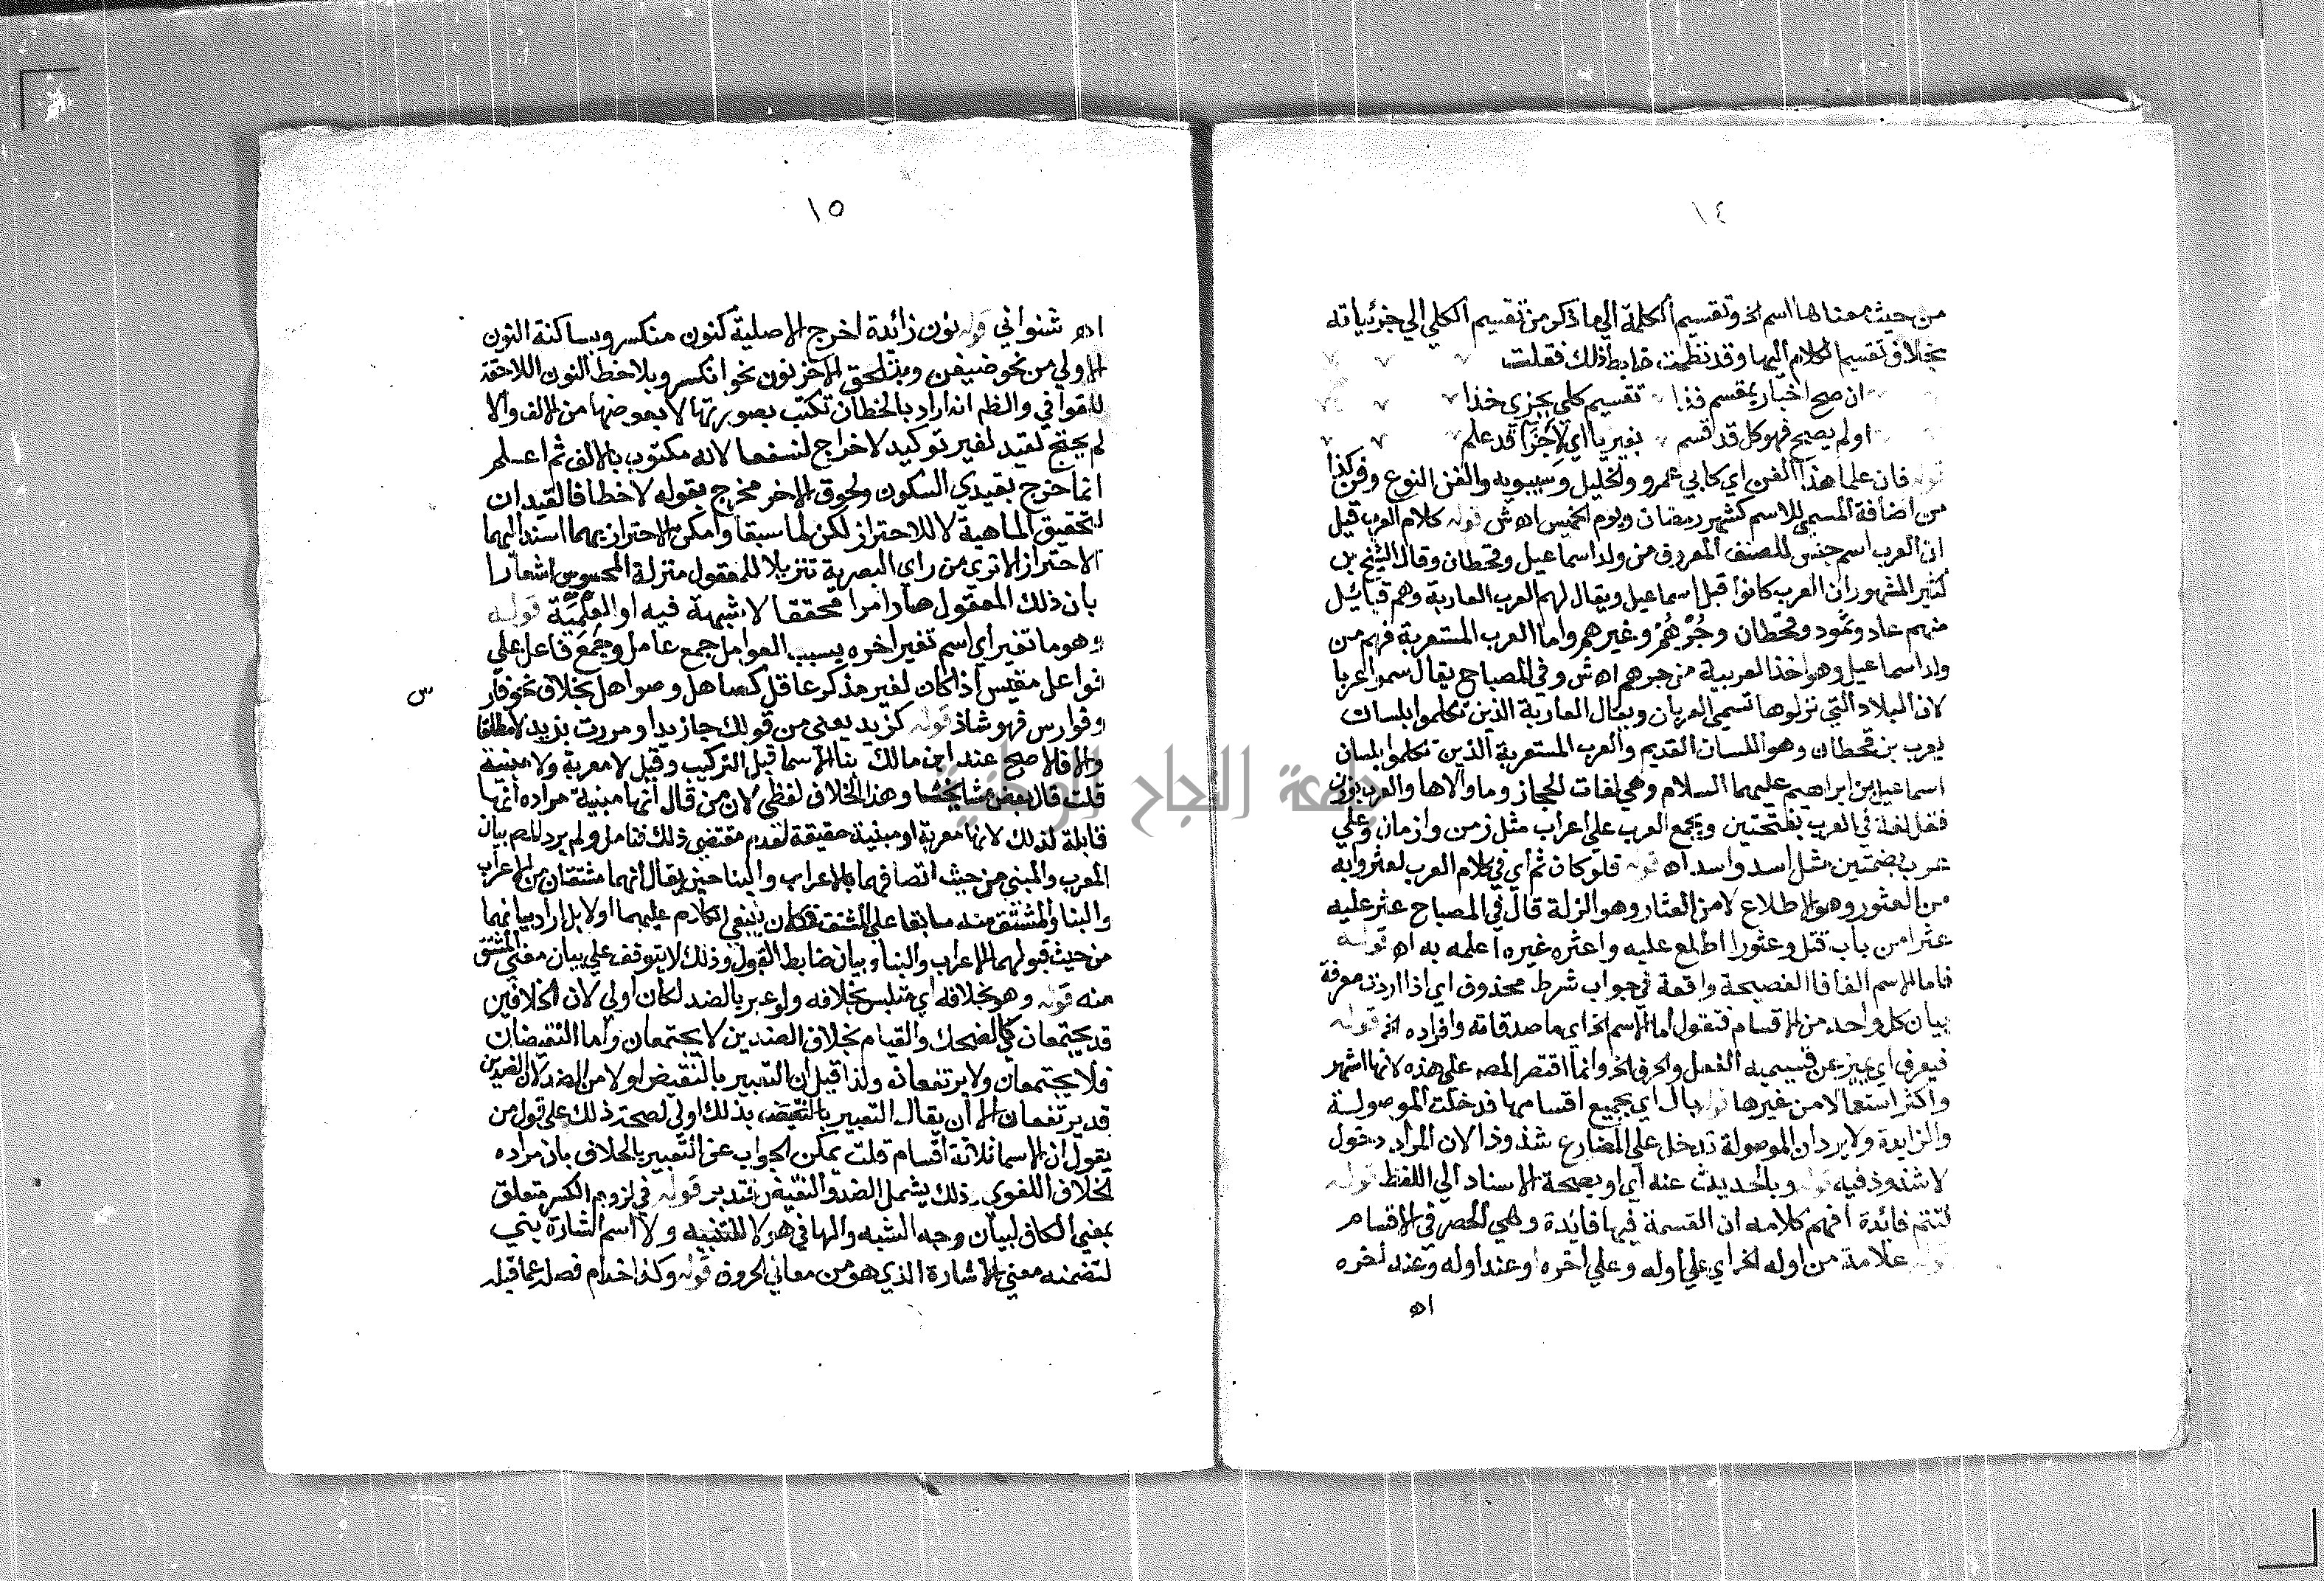 ١٤
من حيث معناها اسم الخ وتقسيم الكلمة الي ما ذكر من تقسيم الكلي الي جزئياته
بخلاف تقسيم الكلام اليها وقد نظمت ضابط ذلك فقلت
ان صح اخبار بمقسم فذا تقسيم كلي بجزي خذا
اولم يصح فهو كل قد قسم بغير يا اي لاجزا قد علم
قوله فان علما هذا الفن اي كابي عمرو والخليل وسيبويه والفن النوع وفن كذا
من اضافة المسمي للاسم كشهر رمضان ويوم الخميس اه ش قوله كلام العرب قيل
ان العرب اسم جنس للصنف المعروف من ولد اسماعيل وقحطان وقال الشيخ بن
كثير المشهور ان العرب كانوا قبل اسماعيل ويقال لهم العرب العاربة وهم قبائل
منهم عاد وثمود وقحطان وجُرْهُمْ وغيرهم واما العرب المستعربة فهم من
ولد اسماعيل وهو اخذ العربية من جرهم اه ش وفي المصباح يقال سموا عربا
لان البلاد التي نزلوها تسمي العربان ويقال العاربة الذين تكلموا بلسان
يعرب بن قحطان وهو اللسان القديم والعرب المستعربة الذين تكلموا بلسان
اسماعيل بن ابراهيم عليهما السلام وهي لغات الحجاز وما والاها والعرب بوزن
قفل لغة في العرب بفتحتين ويجمع العرب علي اعراب مثل زمن وازمان وعلي
عرب بضمتين مثل اسد واسد اه قوله فلو كان ثم اي في كلام العرب لعثروا به
من العثور وهو الاطلاع لا من العثار وهو الزلة قال في المصباح عثر عليه
عثرا من باب قتل وعثورا اطلع عليه واعثره غيره اعلمه به اه قوله
فاما الاسم الفا فا الفصيحة واقعة في جواب شرط محذوف اي اذا اردت معرفة
بيان كل واحد من الاقسام فنقول اما الاسم الخ اي ما صدقاته وافراده الخ قوله
فيعرف اي يميز عن قسيميه الفعل والحرف الخ وانما اقتصر المصه علي هذه لانها اشهر
واكثر استعمالا من غيرها قوله بال اي بجميع اقسامها فدخلت الموصولة
والزايدة ولا يرد ان الموصولة تدخل علي المضارع شذوذا لان المراد دخول
لا شذوذ فيه قوله وبالحديث عنه اي او بصحة الاسناد الي اللفظ قوله
لتتم فائدة افهم كلامه ان القسمة فيها فائدة وهي الحصر في الاقسام
قوله علامة من اوله الخ اي علي اوله وعلي اخره او عند اوله وعند اخره
اه
١٥
اه شنواني قوله نون زائدة اخرج الاصلية كنون منكسر وبساكنة النون
الاولي من نحو ضيفن وبتلحق الاخر نون نحو انكسر وبلا خطا النون اللاحقة
للقوافي والظم انه اراد بالخط ان تكتب بصورتها لا بعوضها من الالف والا
لم يحتج لقيد لغير توكيد لاخراج لنسفعا لانه مكتوب بالالف ثم اعلم
انما خرج بقيدي السكون ولحوق الاخر مخرج بقوله لا خطا فالقيدان
لتحقيق الماهية لا للاحتراز لكن لما سبقا وامكن الاحتراز بهما اسند اليهما
الاحتراز الا نري من راي البصرية تنزيلا للمعقول منزلة المحسوس اشعارا
بان ذلك المعقول صار امرا محققا لا شبهة فيه او العلمية قوله
وهو ما تغير اي اسم تغير اخره بسبب العوامل جمع عامل وجمع فاعل علي
فواعل مقيس اذا كان لغير مذكر عاقل كصاهل وصواهل بخلاف نحو فارس
وفوارس فهو شاذ قوله كزيد يعني من قولك جا زيد او مررت بزيد لا مطلقا
والا فالاصح عند ابن مالك بنا الاسما قبل التركيب وقيل لا معربة ولا مبنية
قلت قال بعض مشايخنا وهذا الخلاف لفظي لان من قال انها مبنية مراده انها
قابلة لذلك لا انها معربة او مبنية حقيقة لعدم مقتضي ذلك فتامل ولم يرد المصم بيان
المعرب والمبني من حيث اتصافهما بالاعراب والبنا حتي يقال انهما مشتقان من الاعراب
والبنا والمشتق منه سابقا علي المشتق فكان ينبغي الكلام عليهما اولا بل اراد بيانهما
من حيث قبولهما الاعراب والبنا وبيان ضابط القبول وذلك لا يتوقف علي بيان معني المشتق
منه قوله وهو بخلافه اي متلبس بخلافه ولو عبر بالضد لكان اولي لان الخلافين
قد يجتمعان كالضحك والقيام بخلاف الضدين لا يجتمعان واما النقيضان
فلا يجتمعان ولا يرتفعان ولذا قيل ان التعبير بالنقيض اولا من الضد لان الضدين
قد يرتفعان الا ان يقال التعبير بالنقيض بذلك اولي لصحة ذلك علي قول من
يقول ان الاسما ثلاثة اقسام قلت يمكن الجواب عن التعبير بالخلاف بان مراده
الخلاف اللغوي وذلك يشمل الضد والنقيض فتدبر قوله في لزوم الكسر متعلق
بمعني الكاف لبيان وجه الشبه والها في هولا للتنبيه ولا اسم اشارة بني
لتضمنه معني الاشارة الذي هو من معاني الحروف قوله وكذا خدام فصله عما قبله
س
جامعة النجاح الوطنية